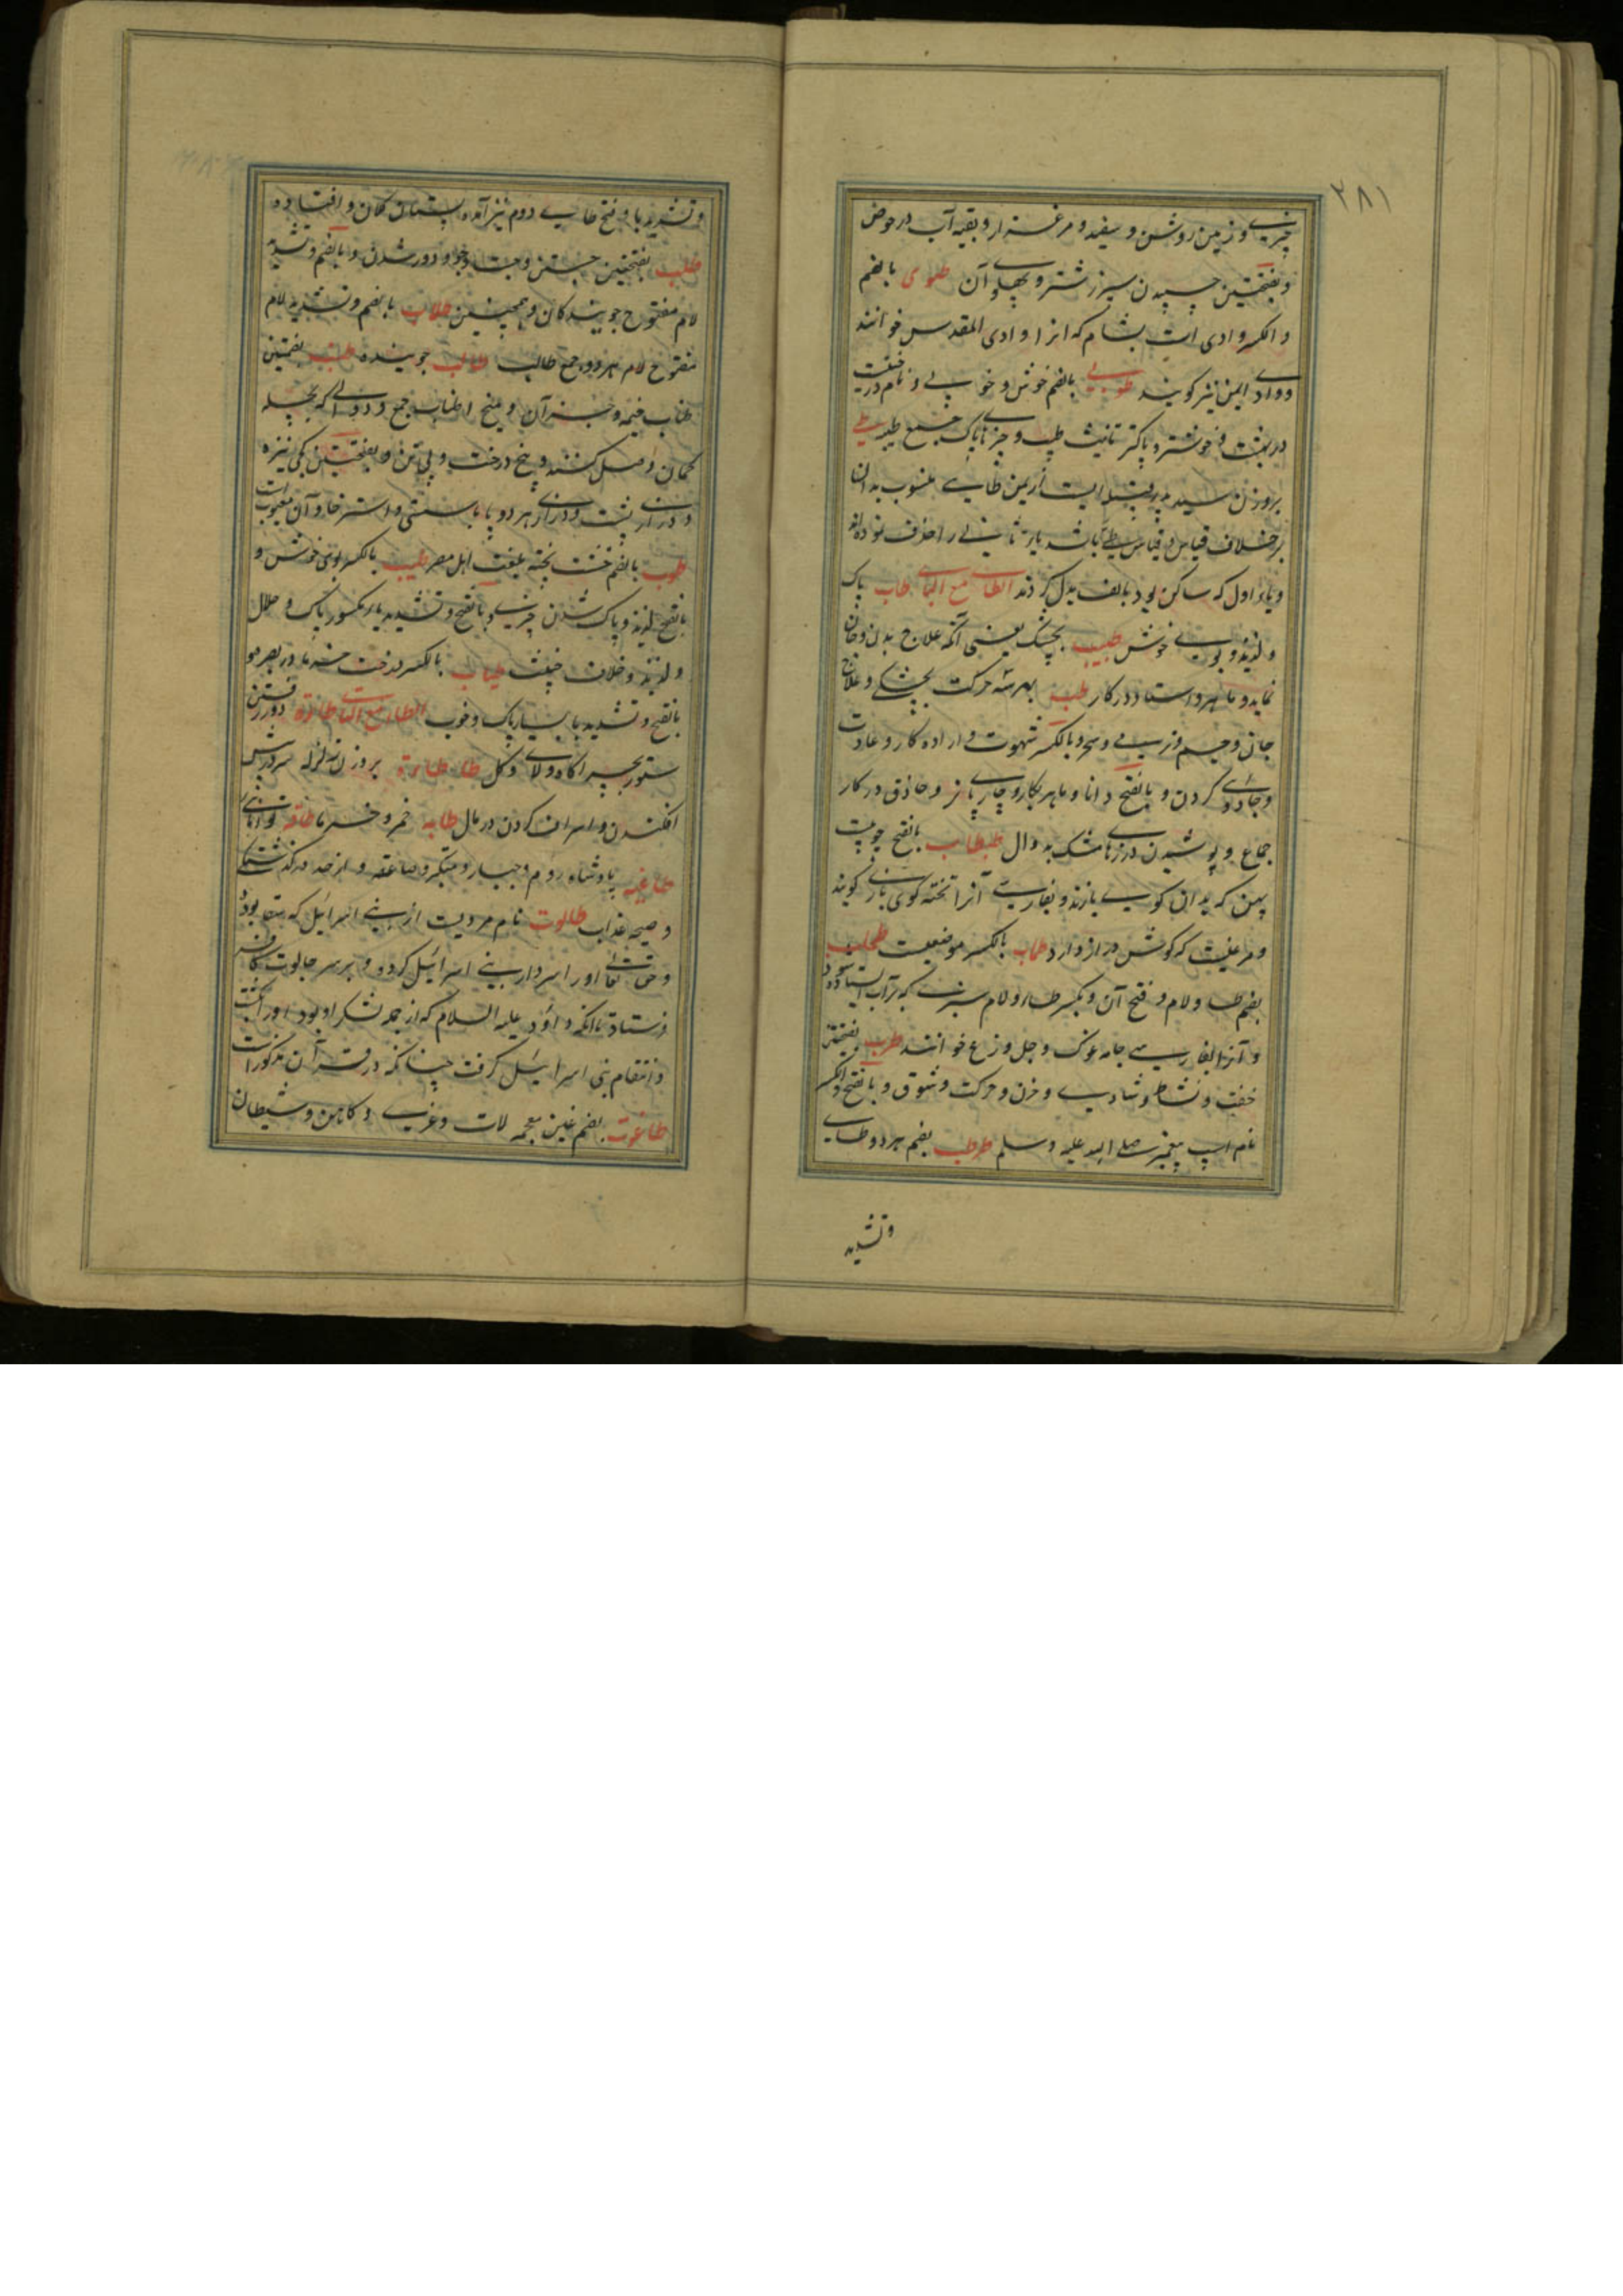 ۲۸۱
چیزی و زمین روشن و سفید و مرغزار و بقیه آب در حوض
و بفتحتین چسپیدن سپرز شتر و پهلوی آن طوی بالضم
و الکسر وادی است بشام که انرا وادی المقدس خوانند
و وادی ایمن نیز کویند طوبی بالضم خوش و خوبی و نام درختیست
در بهشت و خوشتر و پاکتر تانیث طیب و چیزهای پاک جمع طیبه طی
بروزن سید پدر قبیله ایست از یمن طایی منسوب بدان
برخلاف قیاس و قیاس طیئی باشد یاء ثانی را حذف نموده اند
و یاء اول که ساکن بود بالف بدل کردند الطاء مع الباء طاب پاک
و لذیذ و بوی خوش طبیب بچشک یعنی آنکه علاج بدن و جان
نماید و ماهر و استاد در کار طب بهر سه حرکت بچشکی و علاج
جان و جسم و نرمی و سحر و بالکسر شهوت و اراده کار و عادت
و جادوئی کردن و بالفتح دانا و ماهر بکار و حاذق در کار
جماع و پوشیدن درزهای مشک به دوال طبطاب بالفتح چوبیست
پهن که بدان کوی بازند و بفارسی آنرا تخته کوی بازی کویند
و مرغیست که کوش دراز دارد طحاب بالکسر موضعیست طحلب
بضم طا و لام و فتح آن و بکسر طاء و لام سبزی که بر آب ایستاده شود
و آنرا بفارسی جامه غوک و جل وزغ خوانند طرب بفتحتین
خفت و نشاط و شادی و حزن و حرکت و شوق و بالفتح و الکسر
نام اسپ پیغمبر صلی الله علیه وسلم طرطب بضم هر دو طای
وتشدید
وتشدید با و فتح طای دوم نیز آمده پستان کلان و افتاده
طلب بفتحتین جستن و جست وجو و دور شدن و بالضم وتشدید
لام مفتوح جویندکان و همچنین طلاب بالضم وتشدید لام
مفتوح لام هر دو جمع طالب طالب جوینده طنب بضمتین
طناب خیمه و جز آن و میخ اطناب جمع و دوالی که بچله
کمان وصل کنند و بیخ درخت و پی تن و بفتحتین کجی نیزه
و درازی پشت و درازی هر دو پا با سستی و استرخا و آن معیوبست
طوب بالضم خشت پخته بلغت اهل مصر طیب بالکسر بوی خوش و
بالفتح لذیذ و پاک شدن چیزی و بالفتح و تشدید یاء مکسور پاک و حلال
و لذیذ و خلاف خبیث طیاب بالکسر درخت خرما در بصره و
بالفتح و تشدید یا بسیار پاک و خوب الطاء مع التاء
ستور بچرا کاه و ولای و کل طاطاءة بروزن زلزله سر در پیش
افکندن و اسراف کردن در مال طابه خمر و خرما طاقة توانائی
طاغیه پادشاه روم و جبار و متکبر و صاعقه و از حد درکذشتکی
و صیحه عذاب طالوت نام مردیست از بنی اسرائیل که سقا بود
و حق تعالی او را سردار بنی اسرائیل کرد و بر سر جالوت کافر
فرستاد تا آنکه داؤد علیه السلام که از جمله لشکر او بود او را کشت
و انتقام بنی اسرائیل کرفت چنانکه در قرآن مذکور است
طاغوت بضم غین معجمه لات و عزی و کاهن و شیطان